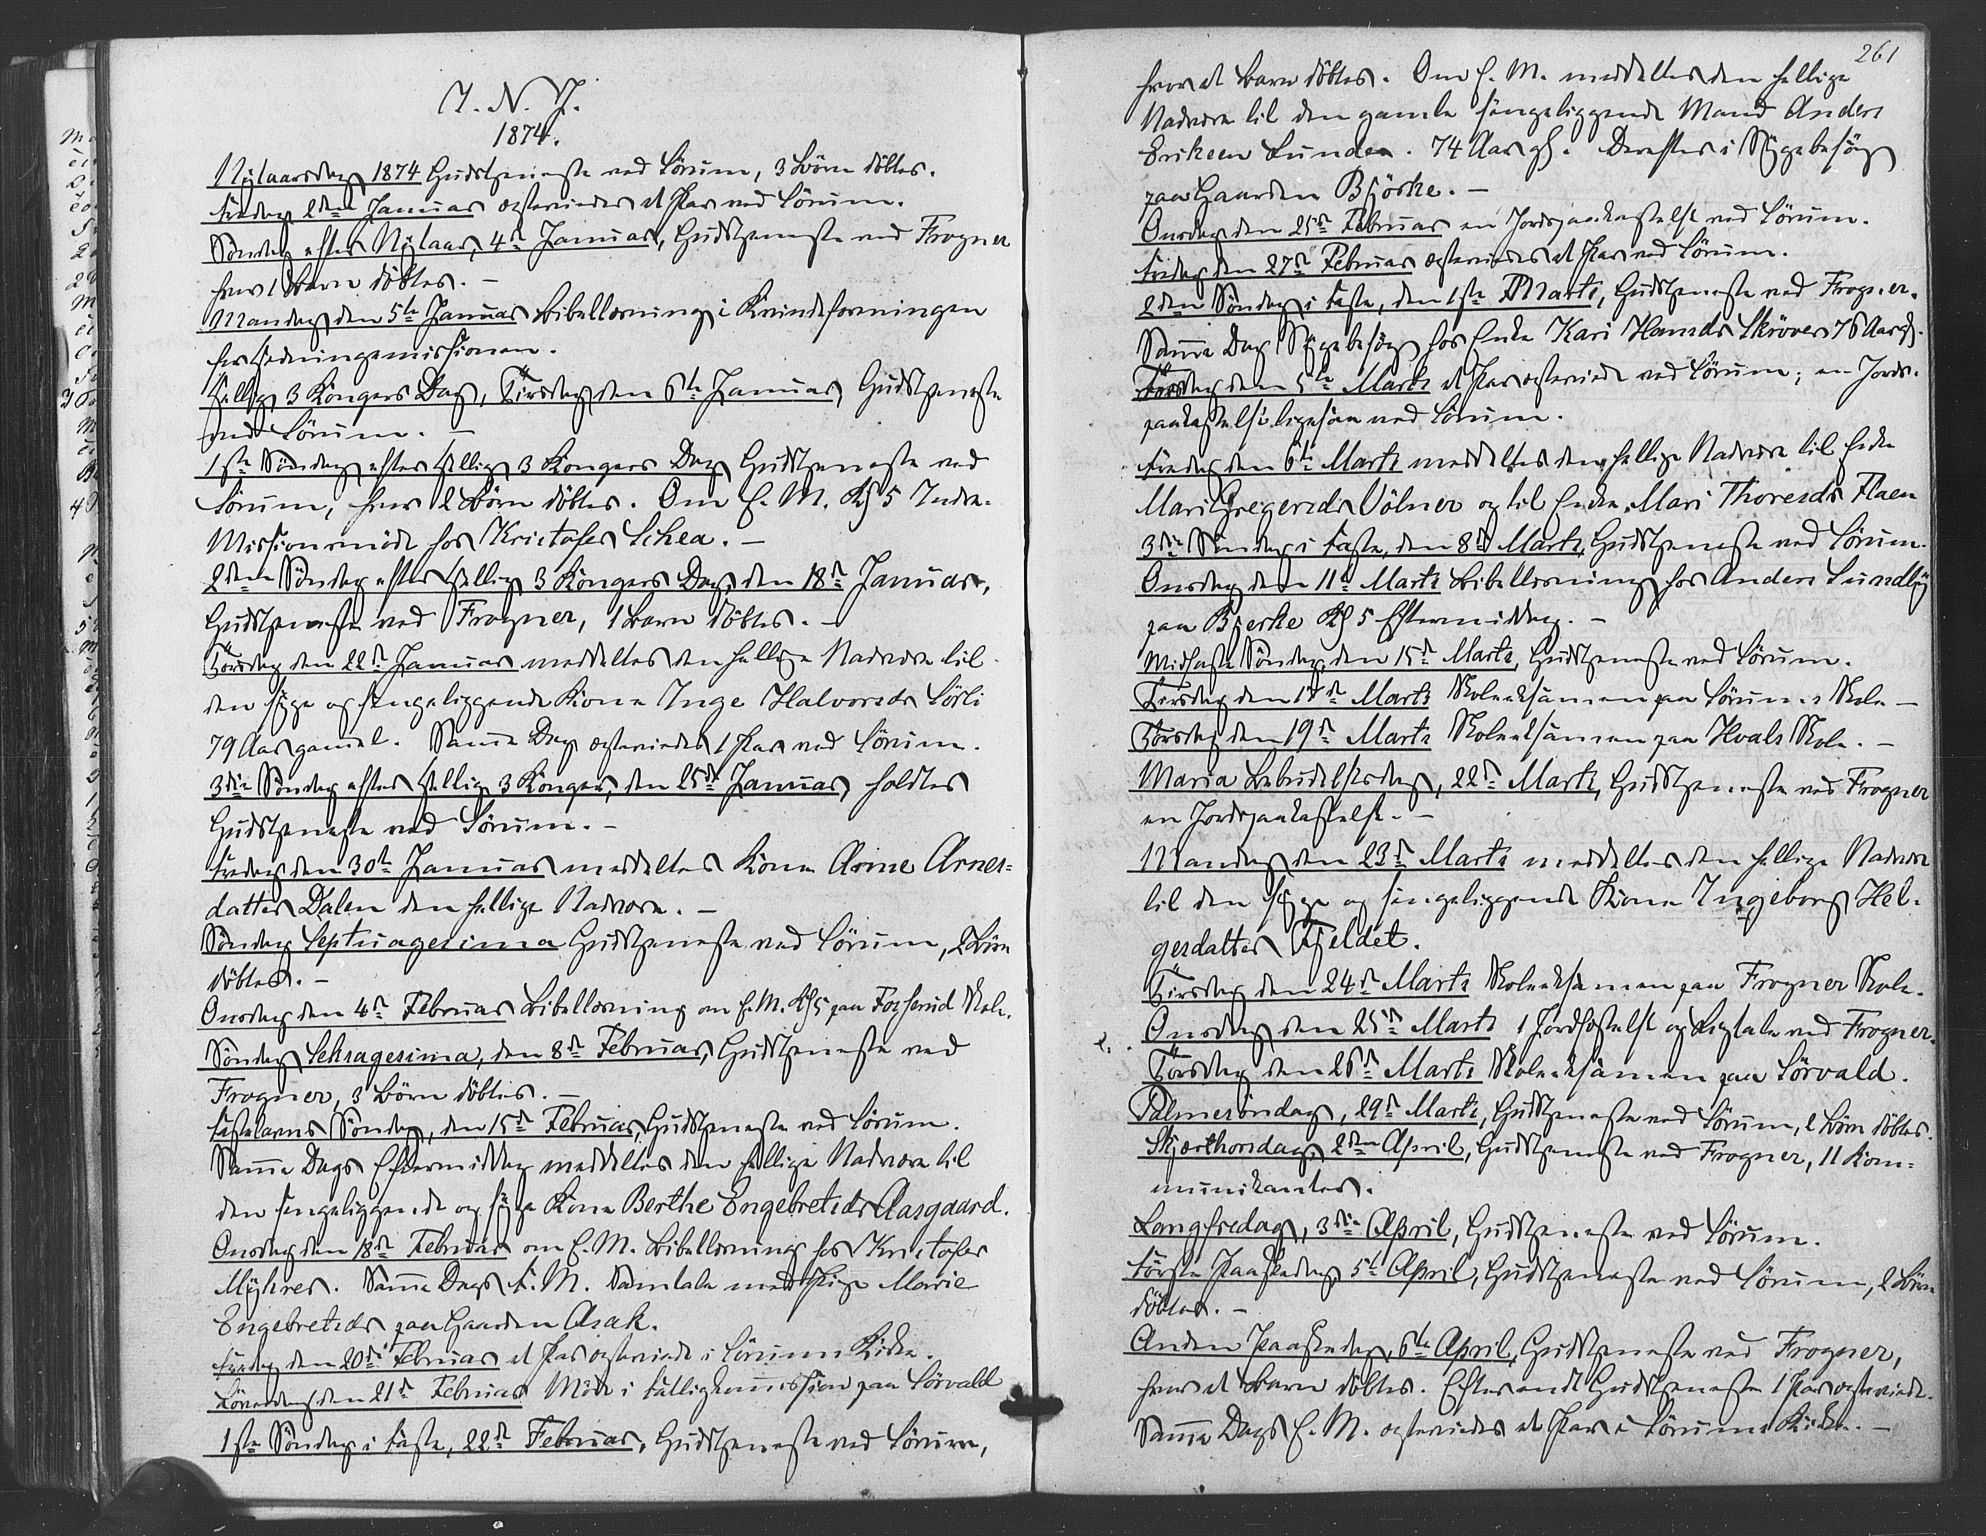 I. N. J.
1874.
Nytaarsdag 1874 Gudstjeneste ved Sörum, 3 Börn döbtes.
Fredag 2den Januar egteviedes et Par ved Sörum.
Söndag efter Nytaar, 4de Januar, Gudstjeneste ved Frogner
hvor 1 Barn döbtes. –
Mandag den 5te Januar Bibellæsning i Kvindeforeningen
for Hedningemissionen.
Hellig 3 Kongers Dag, Tirsdag den 6te Januar, Gudstjeneste
ved Sörum. –
1ste Söndag efter Hellig 3 Kongers Dag Gudstjeneste ved
Sörum, hvor 2 Börn döbtes. Om E. M. Kl 5 Indre-
Missionsmöde hos Kristofer Schea. –
2den Söndag efter Hellig 3 Kongers Dag, den 18de Januar,
Gudstjeneste ved Frogner, 1 Barn döbtes. –
Törsdag den 22de Januar meddeltes den hellige Nadvere til
den syge og sengeliggende Kone Inge Halvorsdr Sörli
79 Aar gamel. Samme Dag egteviedes 1 Par ved Sörum.
3die Söndag efter Hellig 3 Konger, den 25de Januar, holdtes
Gudstjeneste ved Sörum. –
Fredag den 30te Januar meddeltes Kone Anne Arnes-
datter Dalen den hellige Nadvere. –
Söndag Septuagesima Gudstjeneste ved Sörum, 2 Börn
döbtes. –
Onsdag den 4de Februar Bibellæsning om E. M. Kl 5 paa Fosserud Skole.
Söndag Seksagesima, den 8de Februar, Gudstjeneste ved
Frogner, 3 Börn döbtes. –
Fastelavns Söndag, den 15de Februar, Gudstjeneste ved Sörum.
Samme Dags Eftermiddag meddeltes den hellige Nadvere til
den sengeliggende og syge Kone Berthe Engebretsdr Aasgaard.
Onsdag den 18de Februar om E. M. Bibellæsning hos Kristofer
Myhrer. Samme Dags F. M. Samtale med Pige Marie
Engebretsdr paa Gaarden Asak.
Fredag den 20de Februar et Par egteviede i Sörum Kirke.
Löverdag den 21de Februar Möde i Fattigkommission paa Sörvald
1ste Söndag i Faste, 22de Februar, Gudstjeneste ved Sörum,
261
hvor et Barn döbtes. Om E. M. meddeltes den hellige
Nadvere til den gamle sengeliggende Mand Anders
Eriksen Lunder. 74 Aar gl. Derefter i Sygebesög
paa Gaarden Bjórke. –
Onsdag den 25de Februar en Jordspaakastelse ved Sörum.
Fredag den 27de Februar egteviedes et Par ved Sörum.
2den Söndag i Faste, den 1ste Marts, Gudstjeneste ved Frogner.
Samme Dag Sygebesög hos Enke Kari Hansdr Skövver 76 Aar gl.
Torsdag den 5te Marts et Par egteviede ved Sörum; en Jords-
paakastelse ligesaa ved Sörum.
Fredag den 6te Marts meddeltes den hellige Nadvere til Enke
Mari Gregersdr Vólner og til Enke Mari Thoresdr Flaen
3die Söndag i Faste, den 8de Marts, Gudstjeneste ved Sörum.
Onsdag den 11te Marts Bibellæsning hos Anders Sundby
paa Bjerke Kl 5 Eftermiddag. –
Midfaste Söndag, den 15de Marts, Gudstjeneste ved Sörum.
Tirsdag den 17de Marts Skoleeksamen paa Sörums Skole –
Törsdag den 19de Marts Skoleeksamen paa Hvals Skole. –
Maria Bebudelsesdag, 22de Marts, Gudstjeneste ved Frogner
en Jordspaakastelse. –
Mandag den 23de Marts meddeltes den hellige Nadvere
til den syge og sengeliggende Kone Ingeborg Hel-
gesdatter Fjeldet.
Tirsdag den 24de Marts Skoleeksamen paa Frogner Skole.
Onsdag den 25de Marts 1 Jordfæstelse og Ligtale ved Frogner.
Törsdag den 26de Marts Skoleeksamen paa Sörvald.
Palmesöndag, 29de Marts, Gudstjeneste ved Sörum, 2 Börn döbtes.
Skjærthorsdag, 2den April, Gudstjeneste ved Frogner, 11 Kom-
munikanter.
Langfredag, 3die April, Gudstjeneste ved Sörum.
Förste Paaskedag, 5te April, Gudstjeneste ved Sörum, 2 Börn
döbtes. –
Anden Paaskedag, 6te April, Gudstjeneste ved Frogner,
hvor et Barn döbtes. Efter endt Gudstjeneste 1 Par egteviede.
Samme Dags E. M. egteviedes et Par i Sörums Kirke. –